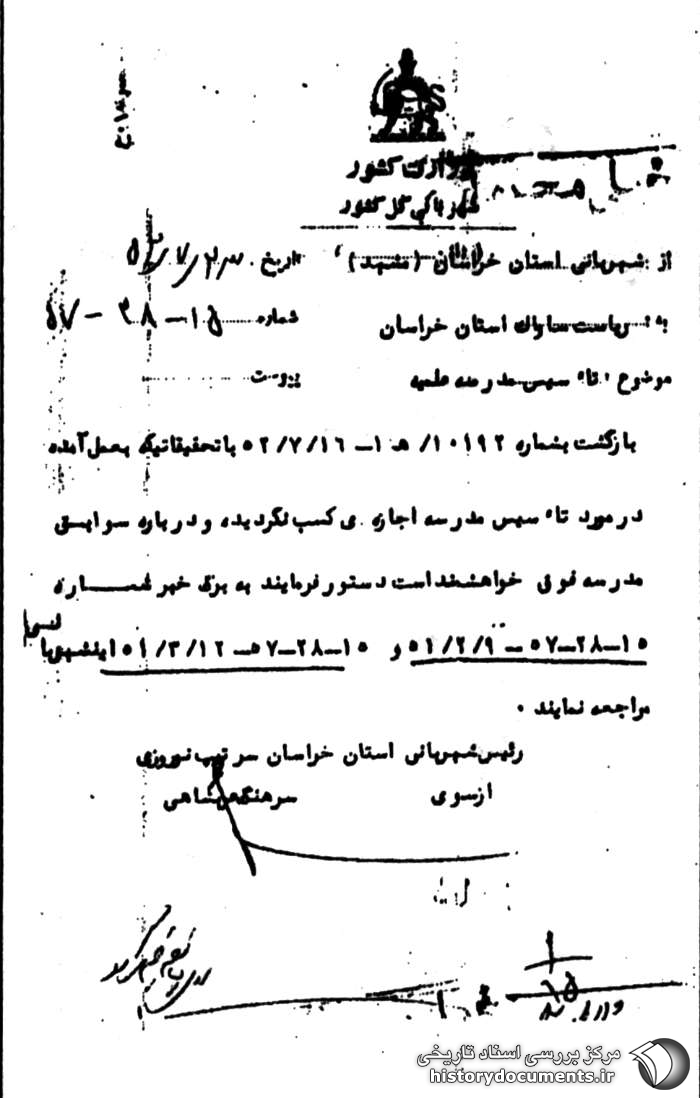 وزارت کشور
شهربانی کل کشور
از شهربانی استان خراسان (مشهد) تاریخ ۵۲/۷/۲۳
به ریاست ساواک استان خراسان شماره ۱۵-۲۸-۵۷
موضوع تاسیس مدرسه علمیه پیوست
بازگشت بشماره ۱۰۱۹۲/ه‍ ۱-۵۲/۷/۱۶ با تحقیقاتیکه بعمل آمده
در مورد تاسیس مدرسه اجازه ی کسب نگردیده و درباره سوابق
مدرسه فوق خواهشمند است دستور فرمایند به برگ خبر شماره
۱۵-۲۸-۵۷-۵۱/۲/۹ و ۱۵-۲۸-۵۷-۵۱/۳/۱۲ این شهربانی
مراجعه نمایند.
رئیس شهربانی استان خراسان سرتیپ نوروزی
از سوی سرهنگ
مرکز بررسی اسناد تاریخی
historydocuments.ir